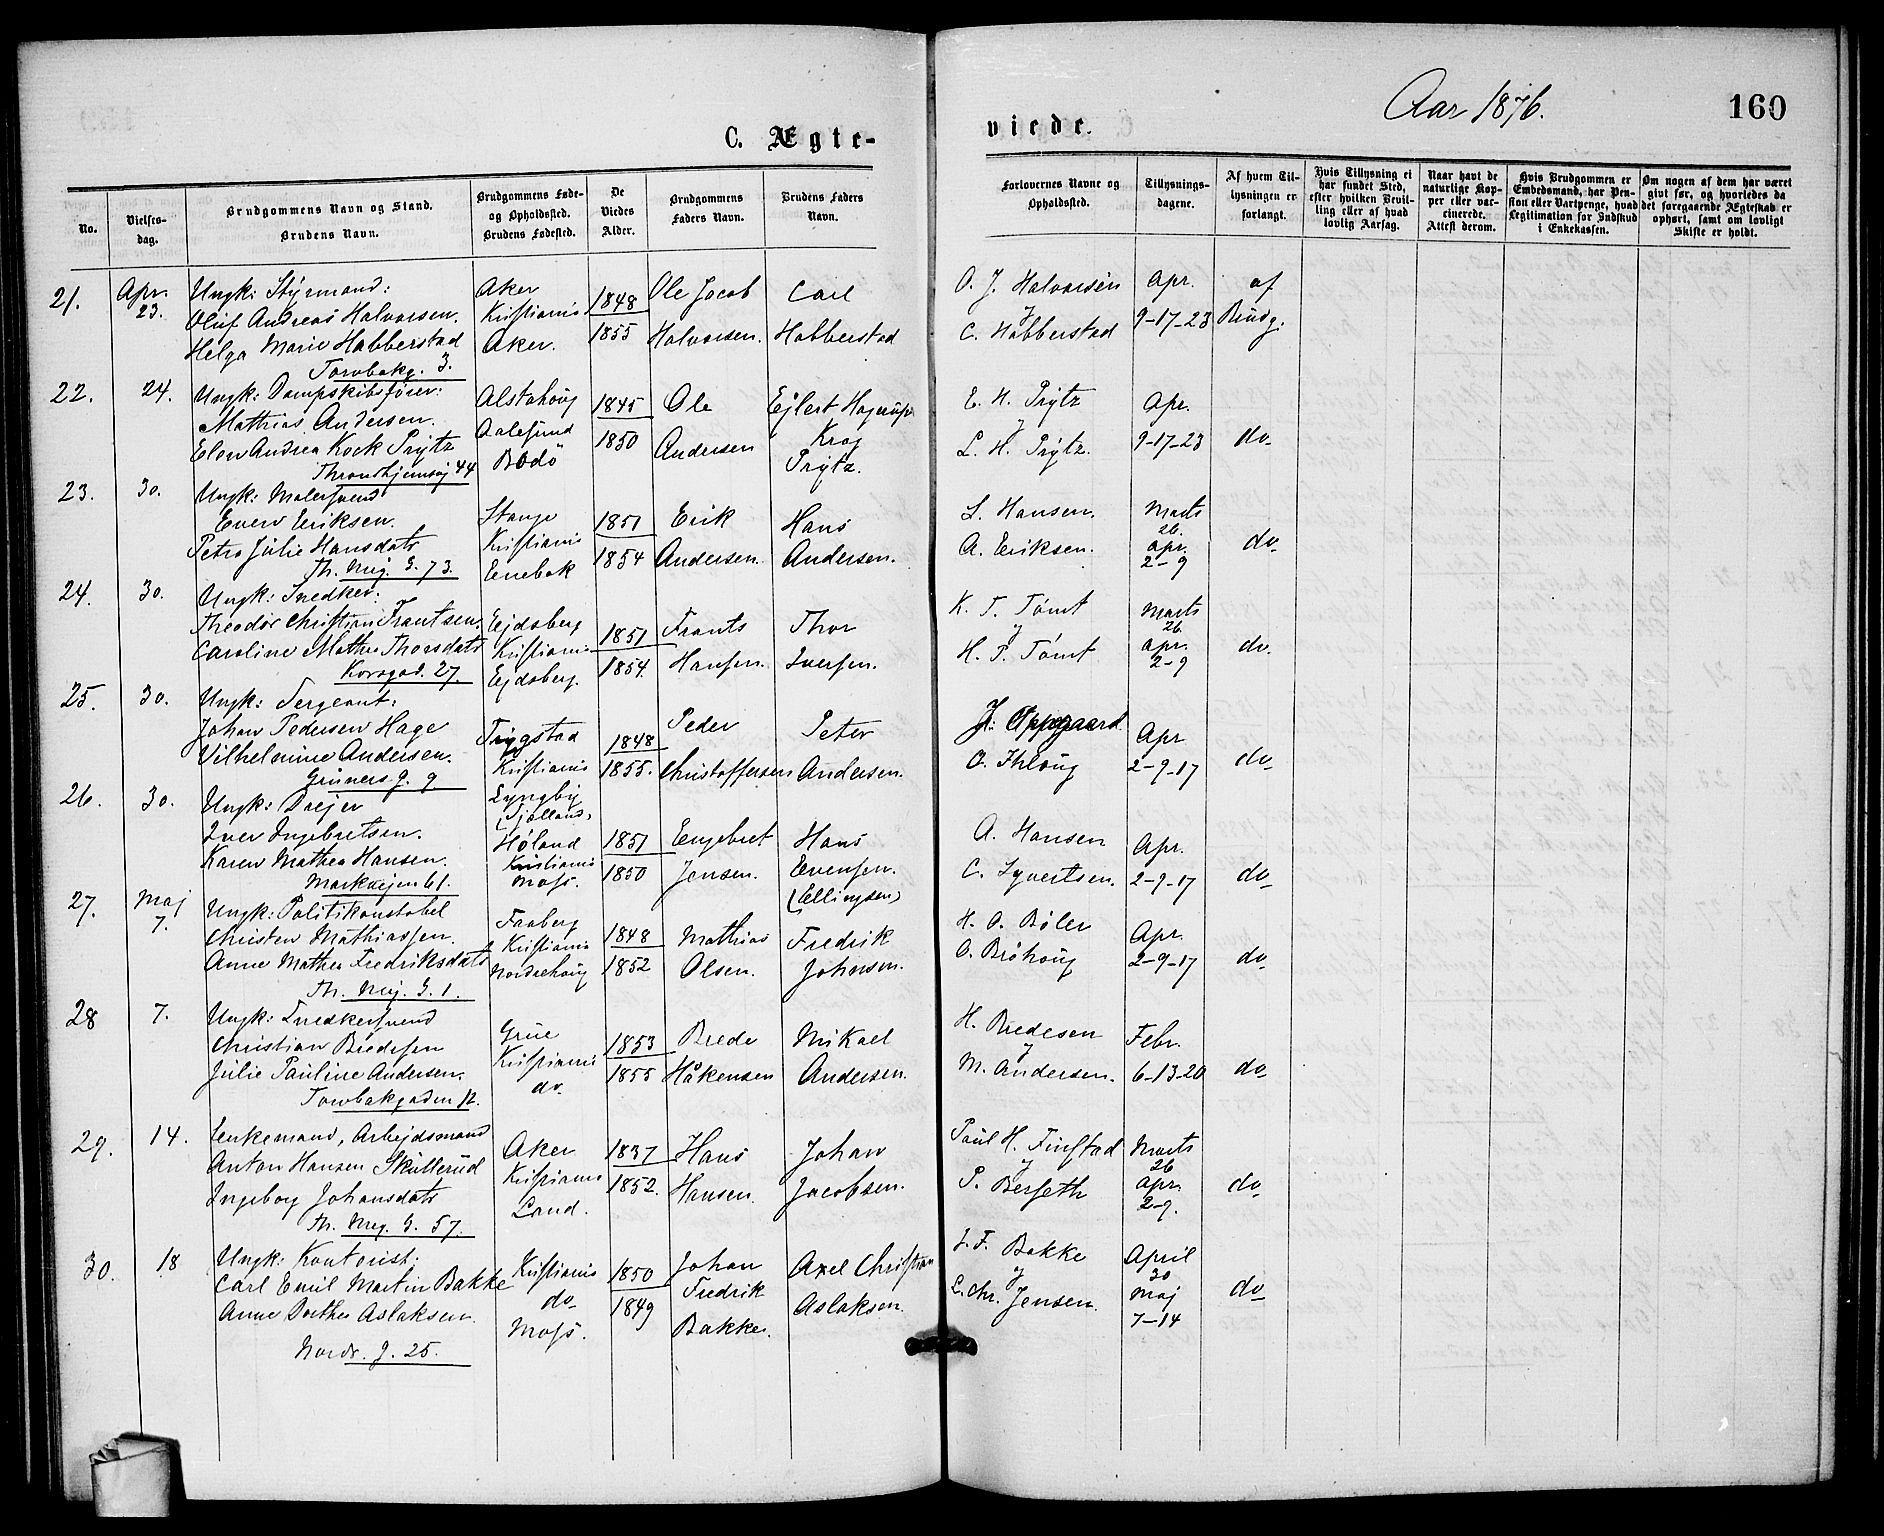 Aar 1876.
160
C. Ægte-
viede.
No.
Vielses-
dag.
Brudgommens Navn og Stand.
Brudens Navn.
Brudgommens Føde-
og Opholdssted.
Brudens Fødested.
De
Viedes
Alder.
Brudgommens
Faders Navn.
Brudens Faders
Navn.
Forlovernes Navne og
Opholdssted.
Tillysnings-
dagene.
Af hvem Til-
lysningen er
forlangt.
Hvis Tillysning ei
har fundet Sted,
efter hvilken Bevil-
ling eller af hvad
lovlig Aarsag.
Naar havt de
naturlige Kop-
per eller vac-
cinerede.
Attest derom.
Hvis Brudgommen er
Embedsmand, har Pen-
sion eller Vartpenge, hvad
Legitimation for Indskud
i Enkekassen.
Om nogen af dem har været
gift før, og hvorledes da
det foregaaende Ægteskab er
ophørt, samt om lovligt
Skifte er holdt.
21.
Apr.
23.
Ungk: Styrmand:
Oluf Andreas Halvorsen.
Helga Marie Habberstad
Torvbakg. 3.
Aker
Kristiania
Aker.
1848
1855
Ole Jacob
Halvorsen.
Carl
Habberstad
O. J. Halvorsen
C. Habberstad
Apr.
9-17-23
af
Brudg.
22.
24.
Ungk: Dampskibsfører:
Mathias Andersen.
Elen Andrea Kock Prytz
Throndhjemsvj 44
Alstahoug
Aalesund
Bodö
1845
1850
Ole
Andersen
Ejlert Hagerup
Krog
Prytz.
E. H. Prytz
L. H. Prytz.
Apr.
9-17-23
do
23.
30.
Ungk: Malersvend
Even Eriksen.
Petra Julie Hansdatr
Th. Mej. G. 73.
Stange
Kristiania
Enebak
1851
1854
Erik
Andersen.
Hans
Andersen.
L. Hansen.
A. Eriksen.
Marts
26.
Apr.
2-9
do
24.
30.
Ungk: Snedker:
Theodor Christian Frantsen.
Caroline Mathea Thorsdatr
Korsgad. 27.
Ejdsberg
Kristiania
Ejdsberg.
1851
1854.
Frants
Hansen.
Thor
Iversen.
K. T. Tømt
H. T. Tømt
Marts
26.
Apr.
2-9
do.
25.
30.
Ungk: Sergeant:
Johan Pedersen Hage
Vilhelmine Andersen.
Grüners g. 9
Trygstad
Kristiania
1848
1855.
Peder
Christoffersen
Peter
Andersen.
J. Oppegaard
O. Ihloug
Apr
2-9-17
do
26.
30.
Ungk: Drejer
Iver Ingebretsen.
Karen Mathea Hansen.
Markvejen 61.
Lyngby
(Sjælland)
Høland
Kristiania
Moss.
1851
1850
Engebret
Jensen.
Hans
Evensen.
(Ellingsen)
A. Hansen
C. Syvertsen.
Apr.
2-9-17
do
27.
Maj
7.
Ungk: Politikonstabel
Christen Mathiassen.
Anne Mathea Fredriksdatr
Th. Mej. G. 1.
Faaberg
Kristiania
Norderhoug
1848
1852
Mathias
Olsen.
Fredrik
Johnsen.
H. O. Bøler
O. Bröhoug
Apr.
2-9-17
do
28
7.
Ungk: Snedkersvend
Christian Bredesen
Julie Pauline Andersen.
Torvbakgaden 12.
Grue
Kristiania
do.
1853
1855
Brede
Håkensen
Mikael
Andersen.
H. Bredesen
M. Andersen.
Febr.
6-13-20
do
29.
14.
Enkemand, Arbejdsmand
Anton Hansen Skullerud
Ingeborg Johansdatr
Th. Mej. G. 57.
Aker
Kristiania
Land.
1837
1852.
Hans
Hansen.
Johan
Jacobsen.
Paul H. Finstad
P. Berseth
Marts
26
Apr.
2-9.
do
30.
18
Ungk: Kontorist.
Carl Emil Martin Bakke
Anne Dorthea Aslaksen.
Nordr. g. 25.
Kristiania
do
Moss.
1850
1849
Johan
Fredrik
Bakke.
Axel Christian
Aslaksen.
J. F. Bakke
L. Chr. Jensen.
April
30
Maj
7-14
do